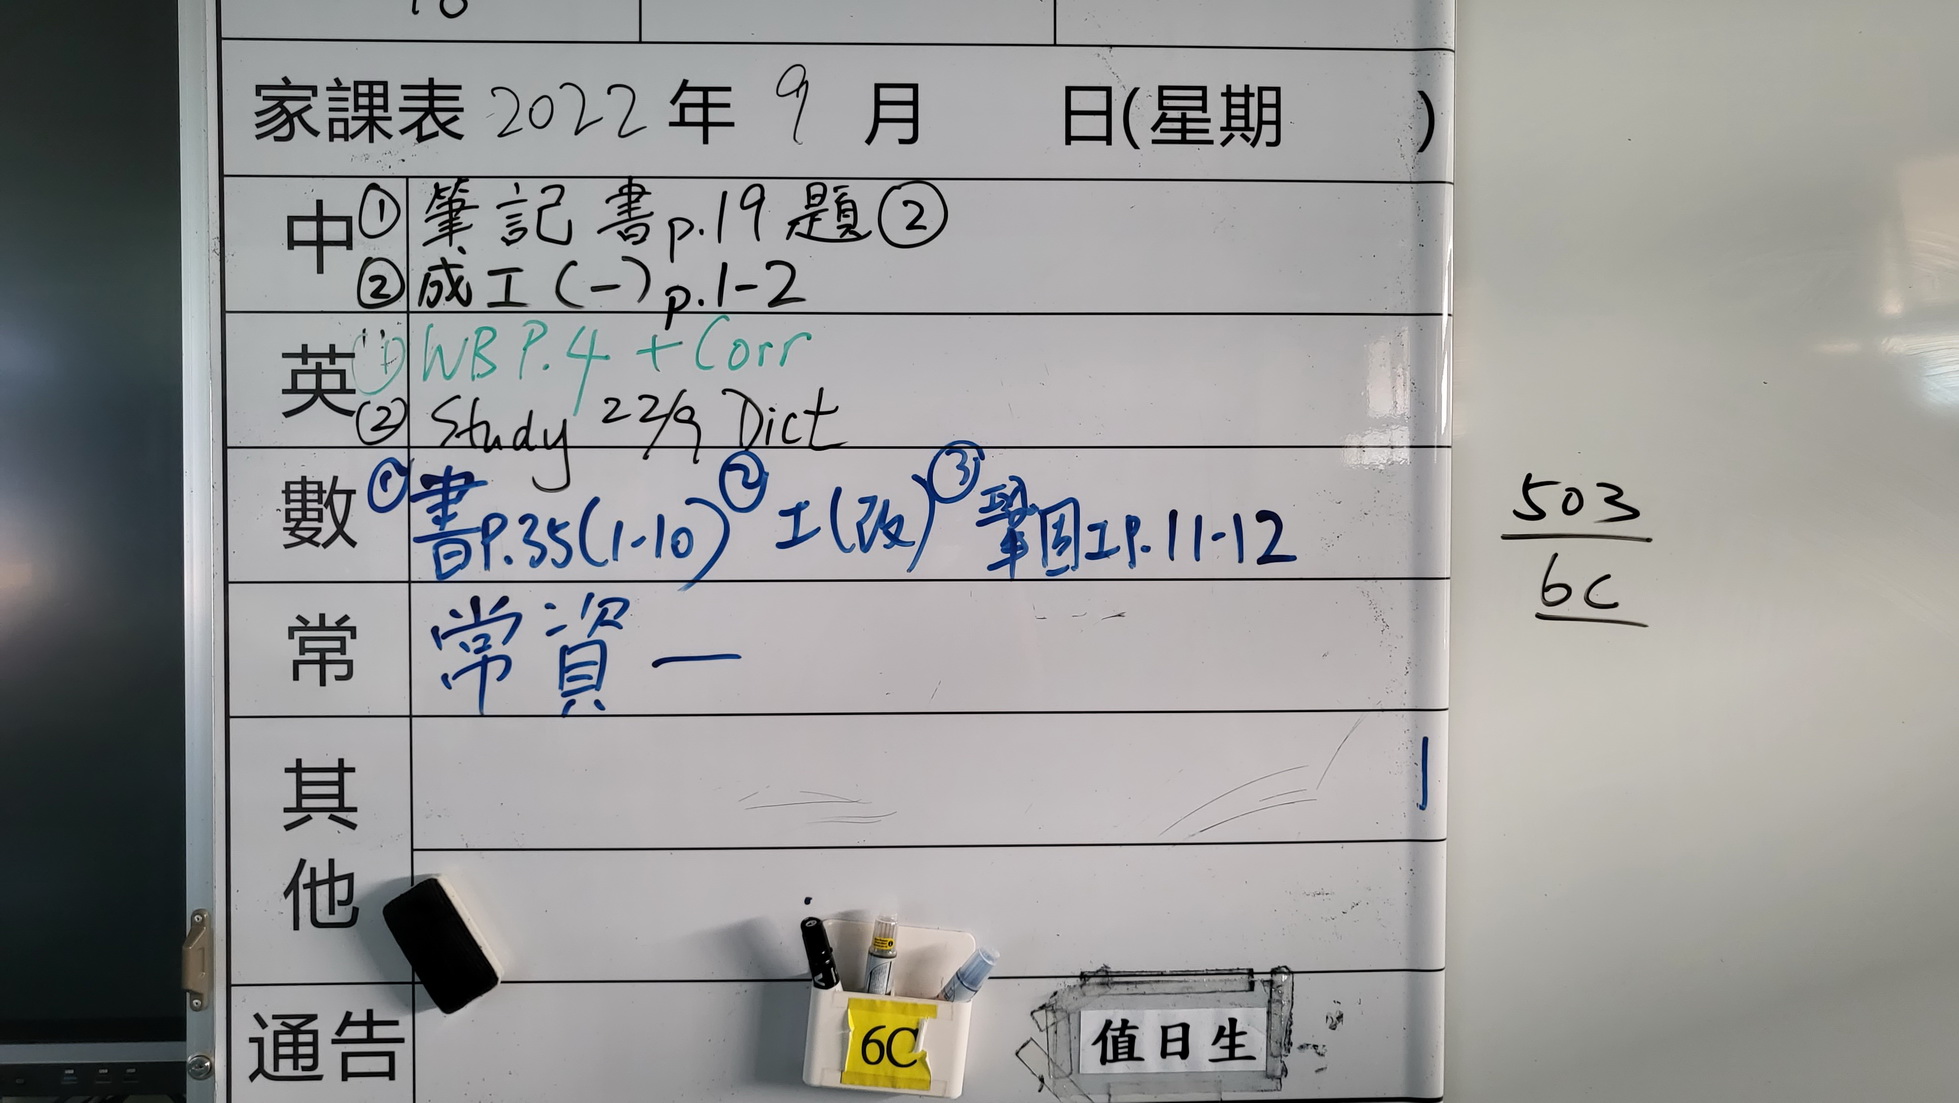 家課表 2022 年 9 月 日(星期 )
中 ① 筆記書 p.19 題②
② 成工(一) p.1-2
英 ① WB P.4 + Corr
② Study 22/9 Dict
數 ① 書P.35(1-10) ② 工(改) ③ 鞏固工P.11-12
常 常資一
其他
通告
6C
值日生
503
6C